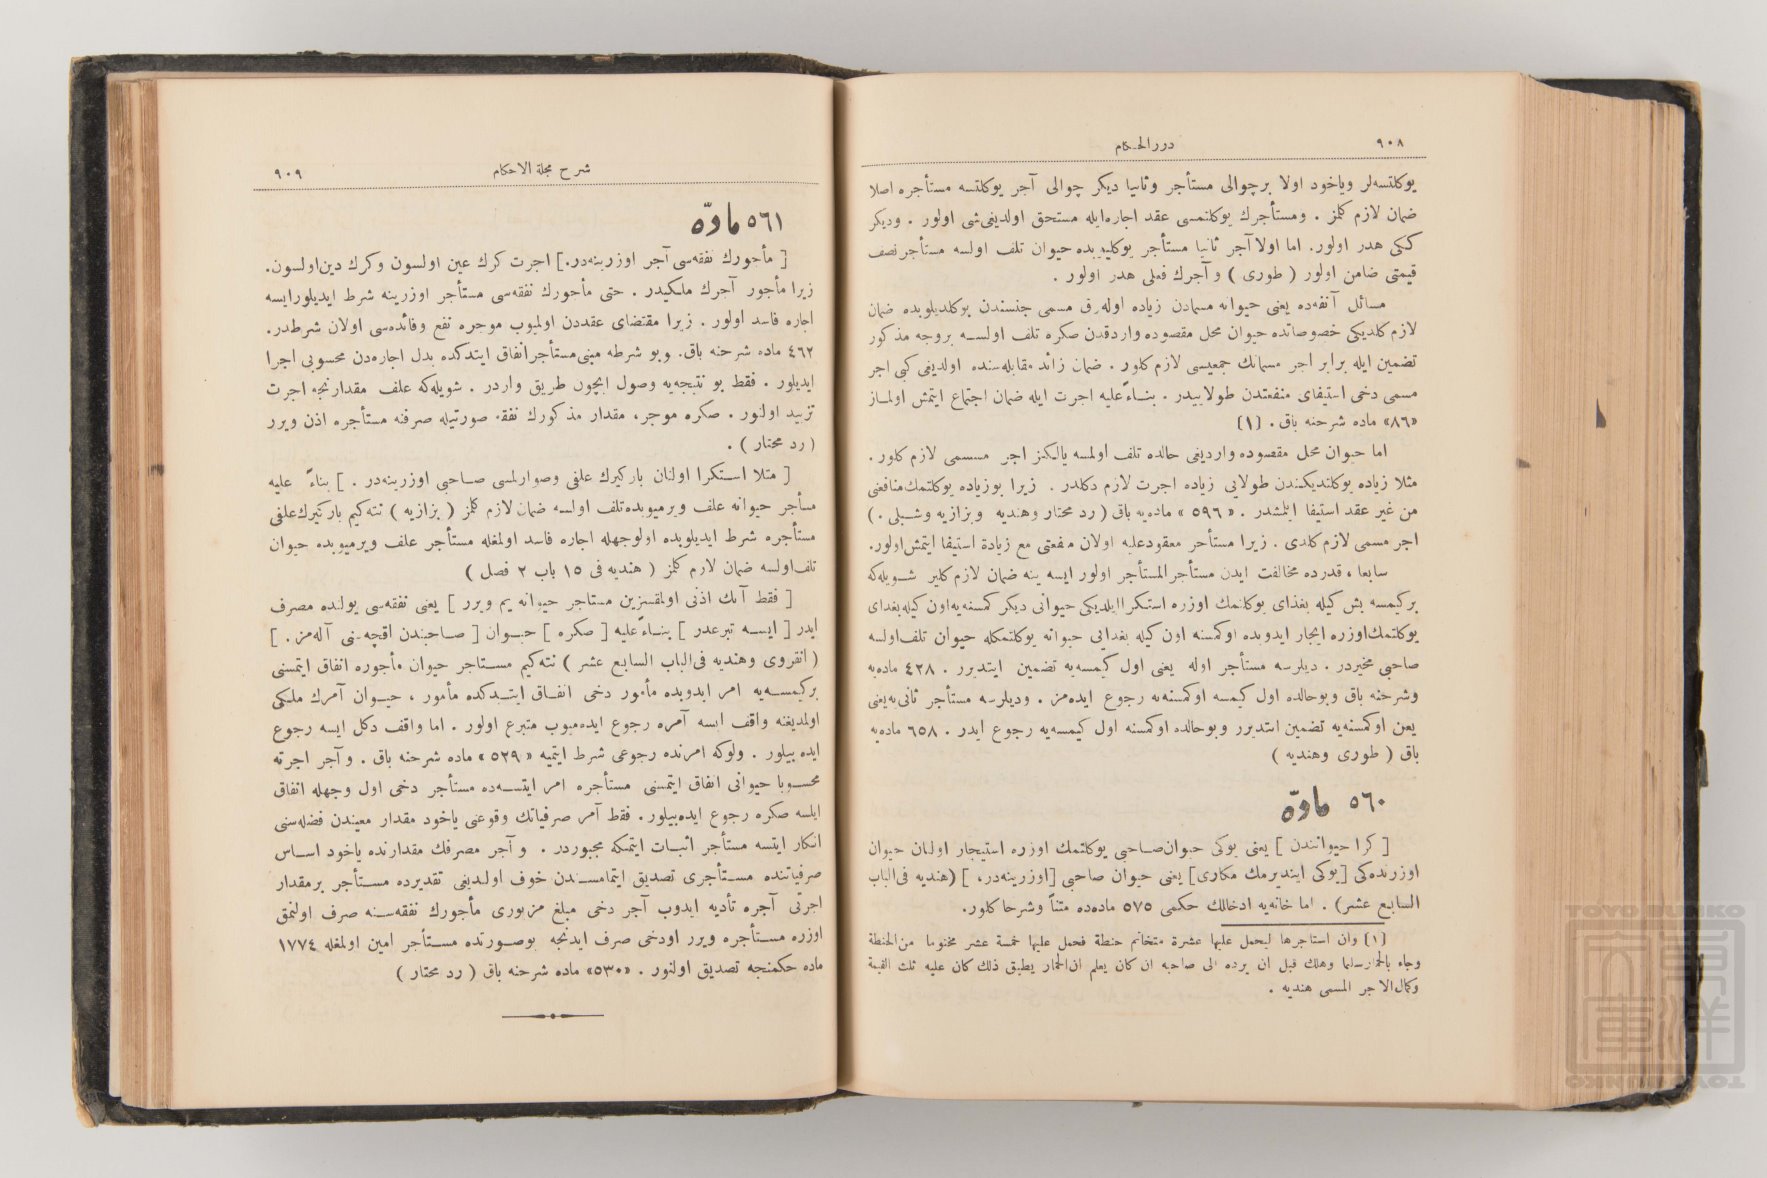 ٩٠٨
دررالحكام
يوكلتسه‌لر وياخود اولا برچوالى مستأجر وثانيا ديكر چوالى آجر يوكلتسه مستأجره اصلا
ضمان لازم كلمز . ومستأجرك يوكلنمسى عقد اجاره‌ايله مستحق اولديغى‌شى اولور . وديكر
كنكى هدر اولور. اما اولا آجر ثانيا مستأجر يوكليوبده حيوان تلف اولسه مستأجر نصف
قيمتى ضامن اولور ( طورى ) و آجرك فعلى هدر اولور .
مسائل آنفه‌ده يعنى حيوانه مسمادن زياده اوله‌رق مسمى جنسندن يوكلديلوبده ضمان
لازم كلديكى خصوصاتده حيوان محل مقصوده واردقدن صكره تلف اولسه بروجه مذكور
تضمين ايله برابر اجر مسمانك جمعيسى لازم كلور . ضمان زائد مقابله‌سنده اولديغى كبى اجر
مسمى دخى استيفاى منفعتدن طولاييدر . بناءً عليه اجرت ايله ضمان اجتماع ايتمش اولماز
«٨٦» ماده شرحنه باق . (١)
اما حيوان محل مقصوده وارديغى حالده تلف اولمسه يالكنز اجر مسمى لازم كلور .
مثلا زياده يوكلنديكندن طولايى زياده اجرت لازم دكلدر . زيرا بوزياده يوكلتمك منافعنى
من غير عقد استيفا ايلمشدر . « ٥٩٦ » ماده‌يه باق ( رد محتار وهنديه وبزازيه وشبلى . )
اجر مسمى لازم كلدى . زيرا مستأجر معقودعليه اولان منفعتى مع زيادة استيفا ايتمش‌اولور.
سابعا ، قدرده مخالفت ايدن مستأجرالمستأجر اولور ايسه ينه ضمان لازم كلير شويله‌كه
بركيمسه بش كيله بغداى يوكلتمك اوزره استكرا ايلديكى حيوانى ديكر كمسنه‌يه اون كيله بغداى
يوكلتمك اوزره ايجار ايدوبده اوكمسنه اون كيله بغدايى حيوانه يوكلتمكله حيوان تلف‌اولسه
صاحبى مخيردر . ديلرسه مستأجر اوله يعنى اول كيمسه‌يه تضمين ايتديرر . ٤٢٨ ماده‌يه
وشرحنه باق وبوحالده اول كيمسه اوكمسنه‌يه رجوع ايده‌مز . وديلرسه مستأجر ثانى‌يه يعنى
يعنى اوكمسنه‌يه تضمين ايتديرر وبوحالده اوكمسنه اول كيمسه‌يه رجوع ايدر . ٦٥٨ ماده‌يه
باق ( طورى وهنديه )
٥٦٠ مادّه
[ كرا حيواتندن ] يعنى يوكى حيوان‌صاحبى يوكلتمك اوزره استيجار اولنان حيوان
اوزرنده‌كى [يوكى اينديرمك مكارى] يعنى حيوان صاحبى [اوزرينه‌در، ] (هنديه فى‌الباب
السابع عشر) . اما خانه‌يه ادخالك حكمى ٥٧٥ ماده‌ده متناً وشرحا كلور.
(١) وان استاجرها ليحمل عليها عشرة مخاتيم حنطة فحمل عليها خمسة عشر مختوما من‌الحنطة
وجاء بالحمار سليما وهلك قبل ان يرده الى صاحبه ان كان يعلم ان‌الحمار يطيق ذلك كان عليه ثلث القيمة
وكمال‌الاجر المسمى هنديه .
شرح مجلة الاحكام
٩٠٩
٥٦١ مادّه
[ مأجورك نفقه‌سى آجر اوزرينه‌در.] اجرت كرك عين اولسون وكرك دين‌اولسون.
زيرا مأجور آجرك ملكيدر . حتى مأجورك نفقه‌سى مستأجر اوزرينه شرط ايديلورايسه
اجاره فاسد اولور . زيرا مقتضاى عقددن اولميوب موجره نفع وفائده‌سى اولان شرطدر.
٤٦٢ ماده شرحنه باق. وبو شرطه مبنى مستأجر انفاق ايتدكده بدل اجاره‌دن محسوبى اجرا
ايديلور . فقط بو نتيجه‌يه وصول ايچون طريق واردر . شويله‌كه علف مقدارنجه اجرت
تزييد اولنور . صكره موجر، مقدار مذكورك نفقه صورتيله صرفنه مستأجره اذن ويرر
( رد محتار ) .
[ مثلا استكرا اولنان باركيرك علفى وصوارلمسى صاحبى اوزرينه‌در . ] بناءً عليه
مستأجر حيوانه علف ويرميوبده‌تلف اولسه ضمان لازم كلمز ( بزازيه ) نته‌كيم باركيرك علفى
مستأجره شرط ايديلوبده اولوجهله اجاره فاسد اولمغله مستأجر علف ويرميوبده حيوان
تلف‌اولسه ضمان لازم كلمز ( هنديه فى ١٥ باب ٢ فصل )
[ فقط آنك اذنى اولمقسزين مستاجر حيوانه يم ويرر ] يعنى نفقه‌سى يولنده مصرف
ايدر [ ايسه تبرعدر ] بناءً عليه [ صكره ] حيوان [ صاحبندن آقچه‌سنى آله‌مز . ]
( انقروى وهنديه فى‌الباب السابع عشر ) نته‌كيم مستاجر حيوان مأجوره انفاق ايتمسنى
بركيمسه‌يه امر ايدوبده مأمور دخى انفاق ايتدكده مأمور ، حيوان آمرك ملكى
اولمديغنه واقف ايسه آمره رجوع ايده‌ميوب متبرع اولور . اما واقف دكل ايسه رجوع
ايده بيلور . ولوكه امرنده رجوعى شرط ايتميه « ٥٢٩ » ماده شرحنه باق . و آجر اجرته
محسوبا حيوانى انفاق ايتمسنى مستأجره امر ايتسه‌ده مستأجر دخى اول وجهله انفاق
ايلسه صكره رجوع ايده‌بيلور. فقط آمر صرفياتك وقوعنى ياخود مقدار معيندن فضله‌سنى
انكار ايتسه مستأجر اثبات ايتمكه مجبوردر . و آجر مصرفك مقدارنده ياخود اساس
صرفياتنده مستأجرى تصديق ايتمامسندن خوف اولديغى تقديرده مستأجر برمقدار
اجرتى آجره تأديه ايدوب آجر دخى مبلغ مزبورى مأجورك نفقه‌سنه صرف اولنمق
اوزره مستأجره ويرر اودخى صرف ايدنجه بوصورتده مستأجر امين اولمغله ١٧٧٤
ماده حكمنجه تصديق اولنور . «٥٣٠» ماده شرحنه باق ( رد محتار )
TOYO BUNKO
東洋
文庫
TOYO BUNKO